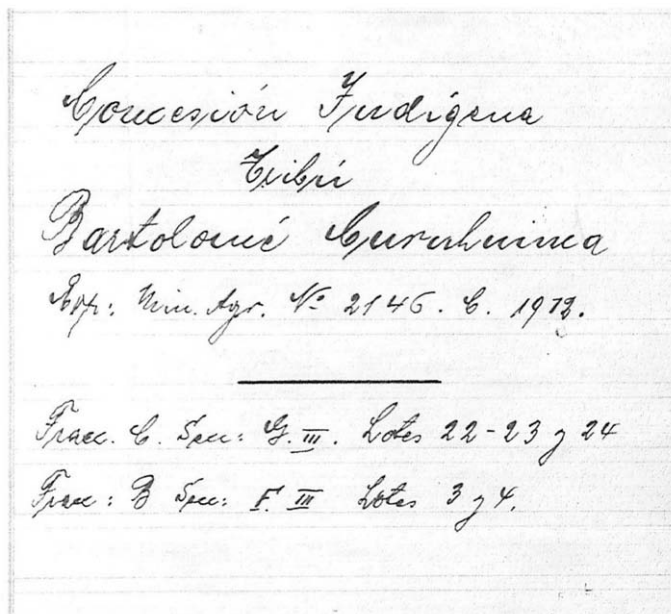 Concesión Indígena
Tribú
Bartolomé Curruhuinca
Exp: Min. Agr. Nº 2146. C. 1912.
Fracc. C. Secc: G. III. Lotes 22-23 y 24
Fracc: B Secc: F. III Lotes 3 y 4.